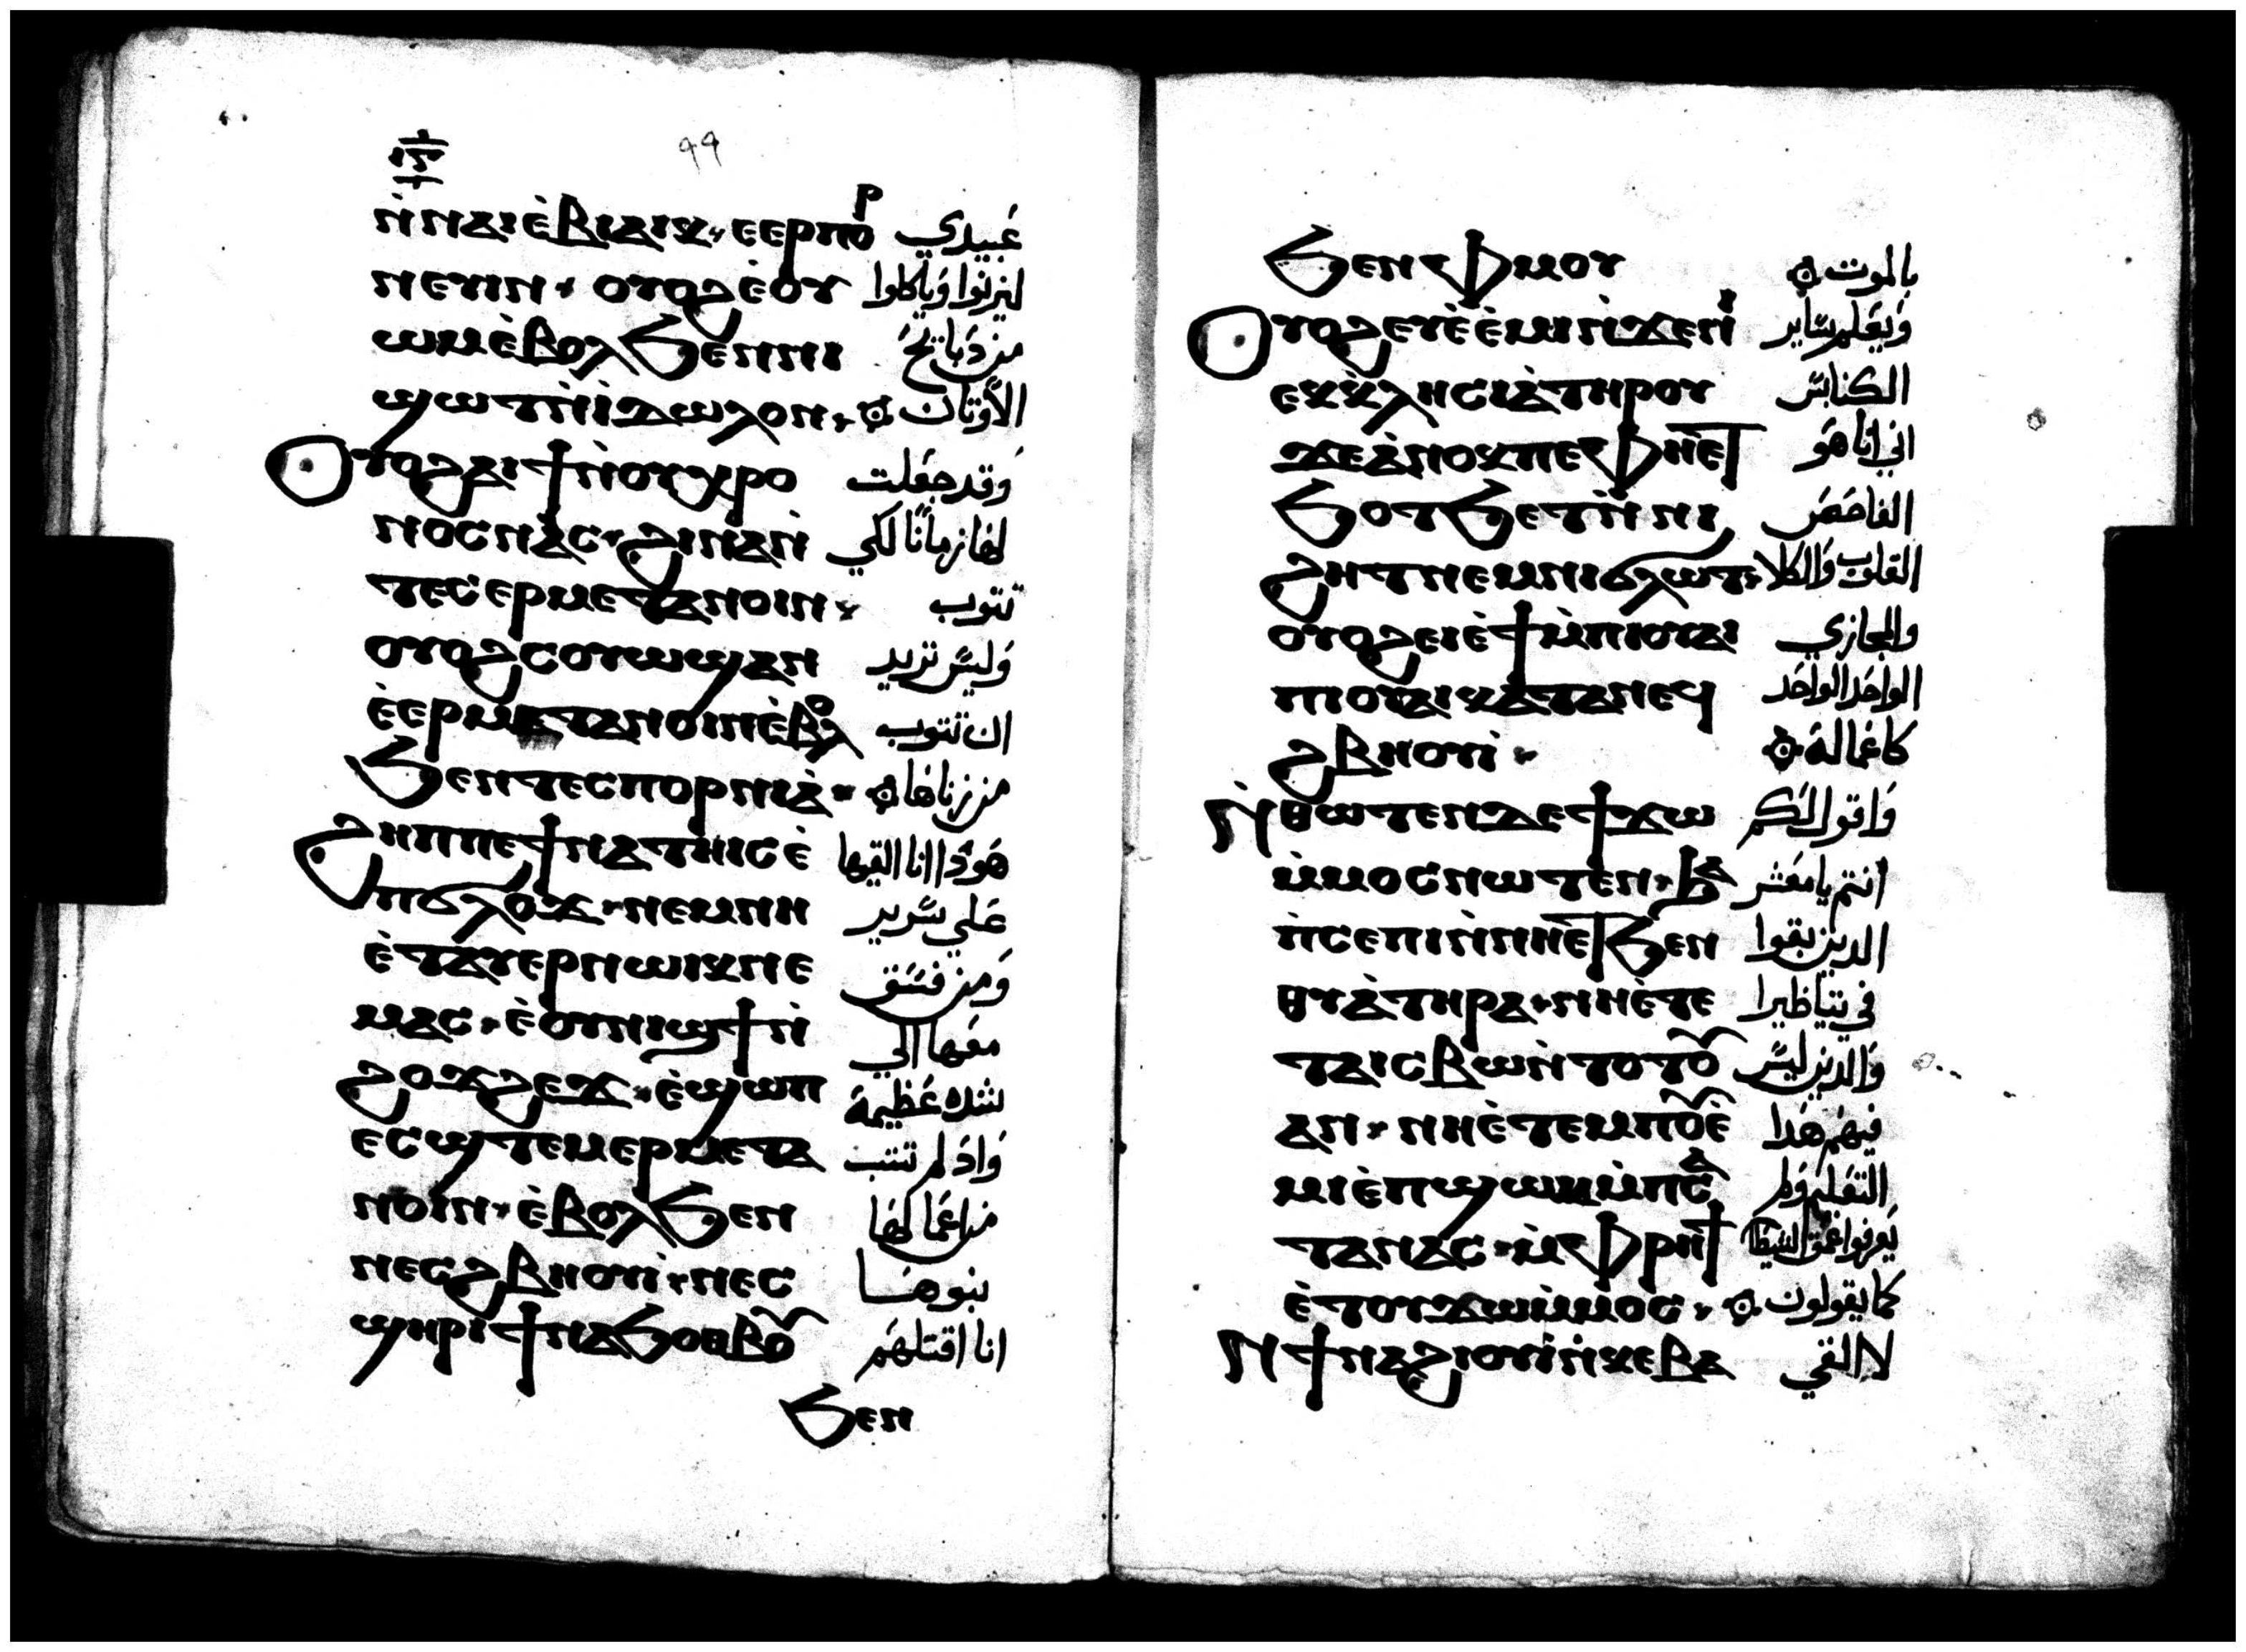 ٩٩
ⲛ̀ⲛⲁⲓⲉ̀ⲃⲓⲁⲓⲕ ⲉⲉⲣⲡⲟⲣ عَبيدي
ⲛⲉⲩⲓⲛ ⲟⲩⲟϩⲉ̀ⲟⲩ ليزنوا وَياكلوا
ⲱⲙⲉ̀ⲃⲟⲗϧⲉⲛⲛⲓ من دَبايحَ
ϣⲱⲧⲛ̀ⲓ̀ⲇⲱⲗⲟⲛ الأوتان
ⲟⲩⲟϩⲁⲓϯⲛ̀ⲟⲩⲭⲣⲟ وَقد جعَلت
ⲛⲟⲥⲛⲁⲥ ϩⲓⲛⲁⲛ̀ لهَا زمانًا لكي
ⲧⲉⲥⲉⲣⲙⲉⲧⲁⲛⲟⲓⲛ تتوب
ⲟⲩⲟϩⲥⲟⲩⲱϣⲁⲛ وَليسَ تزيد
ⲉ̀ⲉⲣⲙⲉⲧⲁⲛⲟⲓⲛⲉ̀ⲃⲟⲗ ان تتوب
ϧⲉⲛⲧⲉⲥⲡⲟⲣⲛⲓⲁ̀ من زناهَا
ϩⲏⲡⲡⲉϯⲛⲁⲧⲏⲓⲥⲉ̀ هَودَا انا القيها
ⲡϭⲗⲟϫ ⲛⲉⲙⲛⲏ عَلي سَرير
ⲉ̀ⲧⲁⲩⲉⲣⲛⲱⲓⲕⲛⲉ وَمن فسَق
ⲙⲁⲥ ⲉ̀ⲟⲩⲛⲓϣϯⲛ̀ معَها الي
ϩⲟϫϩⲉϫ ⲉ̀ϣⲱⲡ شده عَظيمة
ⲉⲥϣⲧⲉⲙⲉⲣⲙⲉⲧⲁ وَادَ لم تتب
ⲛⲟⲓⲛ ⲉ̀ⲃⲟⲗϧⲉⲛ من اعمَا لهَا
ⲛⲉⲥϩⲃⲏⲟⲩⲓ̀ ⲛⲉⲥ بنوهَا
ϣⲏⲣⲓϯⲛⲁϧⲟⲑⲃⲟⲩ انا اقتلهَم
ϧⲉⲛ
ϧⲉⲛⲫⲙⲟⲩ بالموت
ⲟⲩⲟϩⲉⲩⲉ̀ⲉ̀ⲙⲓⲛ̀ϫⲉⲛⲓ وَيعَلم سَاير
ⲉⲕⲕⲗⲏⲥⲓⲁ̀ⲧⲏⲣⲟⲩ الكنايسَ
ϫⲉⲁ̀ⲛⲟⲕⲡⲉⲫⲏⲉⲧ اني انا هَو
ϧⲟⲧϧⲉⲧⲛ̀ⲛⲓ الفاحَصَ
ϩⲏⲧⲛⲉⲙⲛⲓϭⲗⲱⲧ القلوب وَالكلا
ⲟⲩⲟϩⲉⲓⲉ̀ϯⲙ̀ⲡⲓⲟⲩⲁⲓ والمجازي
ⲡⲓⲟⲩⲁⲓⲕⲁⲧⲁⲛⲉϥ الواحَد الواحَد
ϩⲃⲏⲟⲩⲓ̀ كاعمَاله
ⲛ̀ⲑⲱⲧⲉⲛⲇⲉϯϫⲱ وَاقول لكم
ⲙ̀ⲙⲟⲥⲛⲱⲧⲉⲛ ϧⲁ انتم يا معَشر
ⲡ̀ⲥⲉⲡⲓⲛ̀ⲛⲏⲉⲧϧⲉⲛ الدين بقوا
ⲑⲩⲁ̀ⲧⲏⲣⲁ ⲛⲏⲉ̀ⲧⲉ في تياظيرا
ⲧⲁⲓⲥⲃⲱⲛ̀ⲧⲟⲧⲟⲩ وَالدين ليسَ
ⲁⲛ ⲛⲏⲉ̀ⲧⲉⲙⲡⲟⲩⲉ̀ فيهَم هَدا
ⲙⲓⲉ̀ⲡϣⲱⲕⲙ̀ⲡⲥⲁ التعَليم وَلم
ⲧⲁⲛⲁⲥ ⲙ̀ⲫⲣⲏϯ يعَرفوا عمَق الشيطا
ⲉ̀ⲧⲟⲩϫⲱⲙ̀ⲙⲟⲥ كما يقولون
ⲛ̀ϯⲛⲁϩⲓⲟⲩⲓ̀ⲛ̀ⲕⲉⲃⲁ لا القي